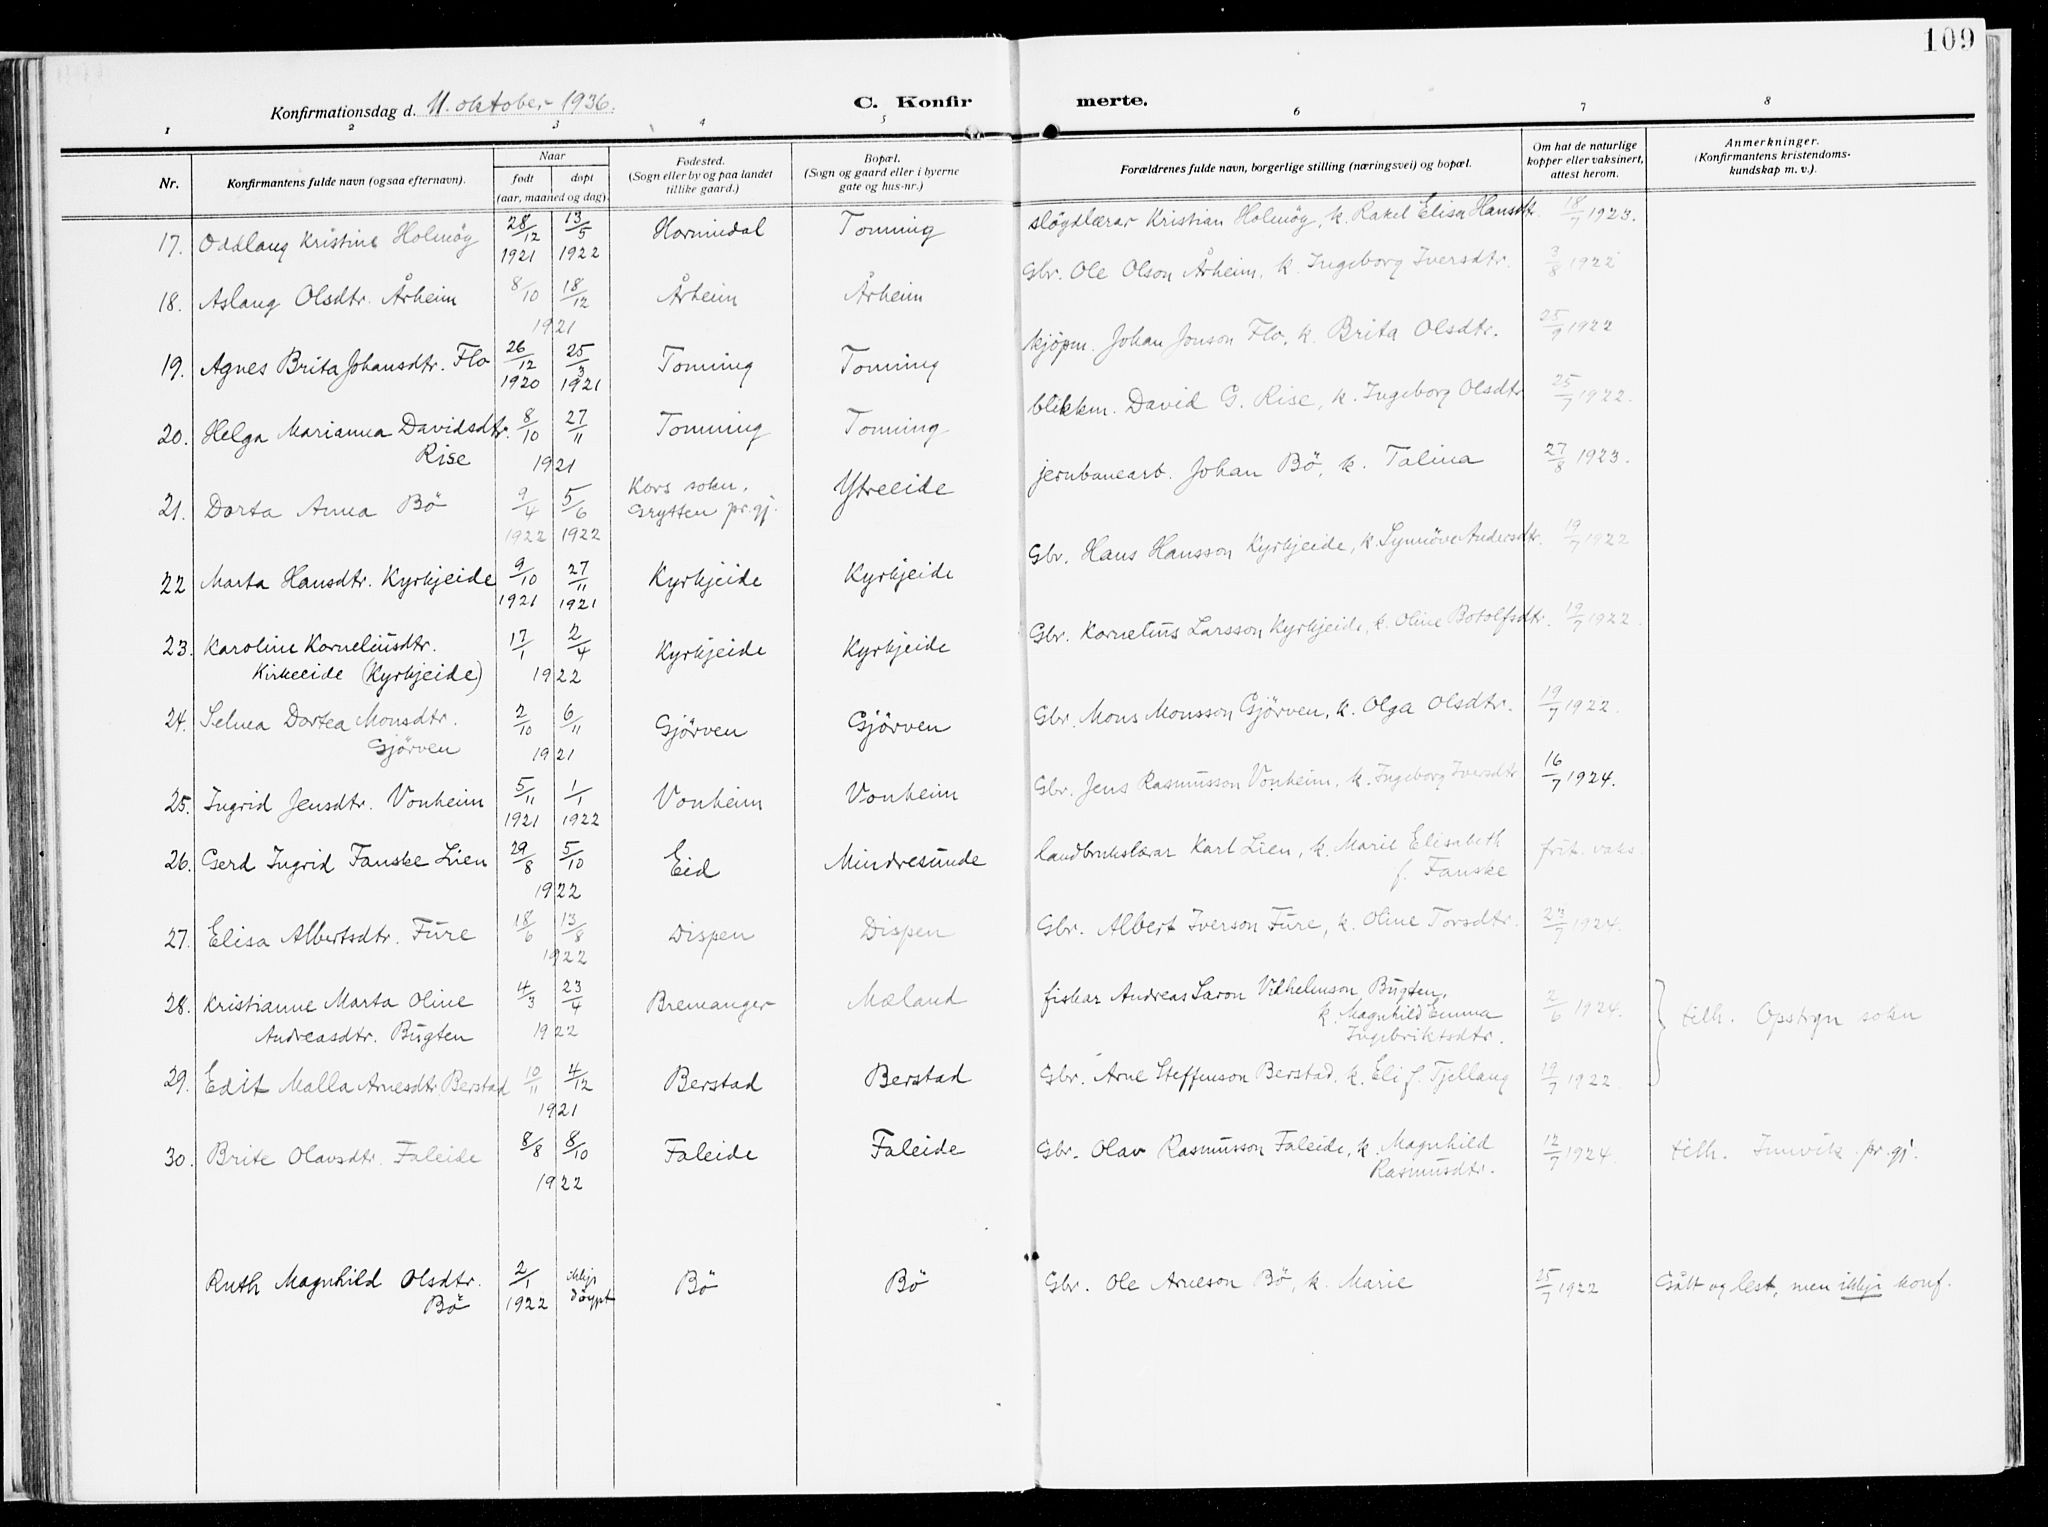 109
Konfirmationsdag d. 11. oktober 1936.
C. Konfir merte.
1 2 3 4 5 6 7 8
Nr.
Konfirmantens fulde navn (ogsaa efternavn).
Naar
født døpt
(aar, maaned og dag)
Fødested.
(Sogn eller by og paa landet
tillike gaard.)
Bopæl.
(Sogn og gaard eller i byerne
gate og hus-nr.)
Forældrenes fulde navn, borgerlige stilling (næringsvei) og bopæl.
Om hat de naturlige
kopper eller vaksinert,
attest herom.
Anmerkninger.
(Konfirmantens kristendoms-
kundskap m. v.).
17. Oddlaug Kristine Holmög 28/12 1921 13/5 1922 Hornindal Tonning slöydlærar Kristian Holmög, k. Rakel Elisa Hansdtr. 18/7 1923.
18. Aslaug Olsdtr. Årheim 8/10 18/12 1921 Årheim Årheim Gbr. Ole Olson Årheim, k. Ingeborg Iversdtr. 3/8 1922
19. Agnes Brita Johansdtr. Flo 26/12 1920 25/3 1921 Tonning Tonning kjöpm. Johan Jonson Flo, k. Brita Olsdtr. 25/9 1922
20. Helga Marianna Davidsdtr. 8/10 27/11 Tonning Tonning blikkm. David G. Rise, k. Ingeborg Olsdtr 25/7 1922.
Rise 1921
21. Dorta Anna Bö 9/4 1922 5/6 1922 Kors sokn, Grytten pr.gj. Ytreeide jernbanearb. Johan Bö, k. Talina 27/8 1923.
22 Marta Hansdtr. Kyrkjeide 9/10 1921 27/11 1921 Kyrkjeide Kyrkjeide Gbr. Hans Hansson Kyrkjeide, k. Synnöve Andersdtr. 19/7 1922
23. Karoline Korneliusdtr. 17/1 2/4 Kyrkjeide Kyrkjeide Gbr. Kornelius Larsson Kyrkjeide, k. Oline Botolfsdtr. 19/7 1922.
Kirkeeide (Kyrkjeide) 1922
24. Selma Dortea Monsdtr. 2/10 6/11 Gjörven Gjörven Gbr. Mons Monsson Gjörven, k. Olga Olsdtr. 19/7 1922.
Gjörven 1921
25. Ingrid Jensdtr. Vonheim 5/11 1921 1/1 1922 Vonheim Vonheim Gbr. Jens Rasmusson Vonheim, k. Ingeborg Iversdtr 16/7 1924.
26. Gerd Ingrid Fanske Lien 29/8 5/10 1922 Eid Mindresunde landbrukslærar Karl Lien, k. Marie Elisabeth frit. vaks.
f. Fanske
27. Elisa Albertsdtr. Fure 18/6 13/8 1922 Dispen Dispen Gbr. Albert Iverson Fure, k. Oline Torsdtr. 23/7 1924.
28. Kristianne Marta Oline 4/3 23/4 Bremanger Mæland fiskar Andreas Saron Vilhelmson Bugten, 2/6 1924. tilh. Opstryn sokn
Andreasdtr. Bugten 1922 k. Magnhild Emma
Ingebriktsdtr.
29. Edit Malla Arnesdtr. Berstad 10/11 4/12 1921 Berstad Berstad Gbr. Arne Steffenson Berstad, k. Eli f. Tjellaug 19/7 1922.
30. Brite Olavsdtr. Faleide 8/8 8/10 1922 Faleide Faleide Gbr. Olav Rasmusson Faleide, k. Magnhild 12/7 1924. tilh. Innvik pr.gj.
Rasmusdtr.
Ruth Magnhild Olsdtr. 2/1 ikkje Bö Bö Gbr. Ole Arneson Bö, k. Marie 25/7 1922 Gått og lest, men ikkje konf.
Bö 1922 döypt